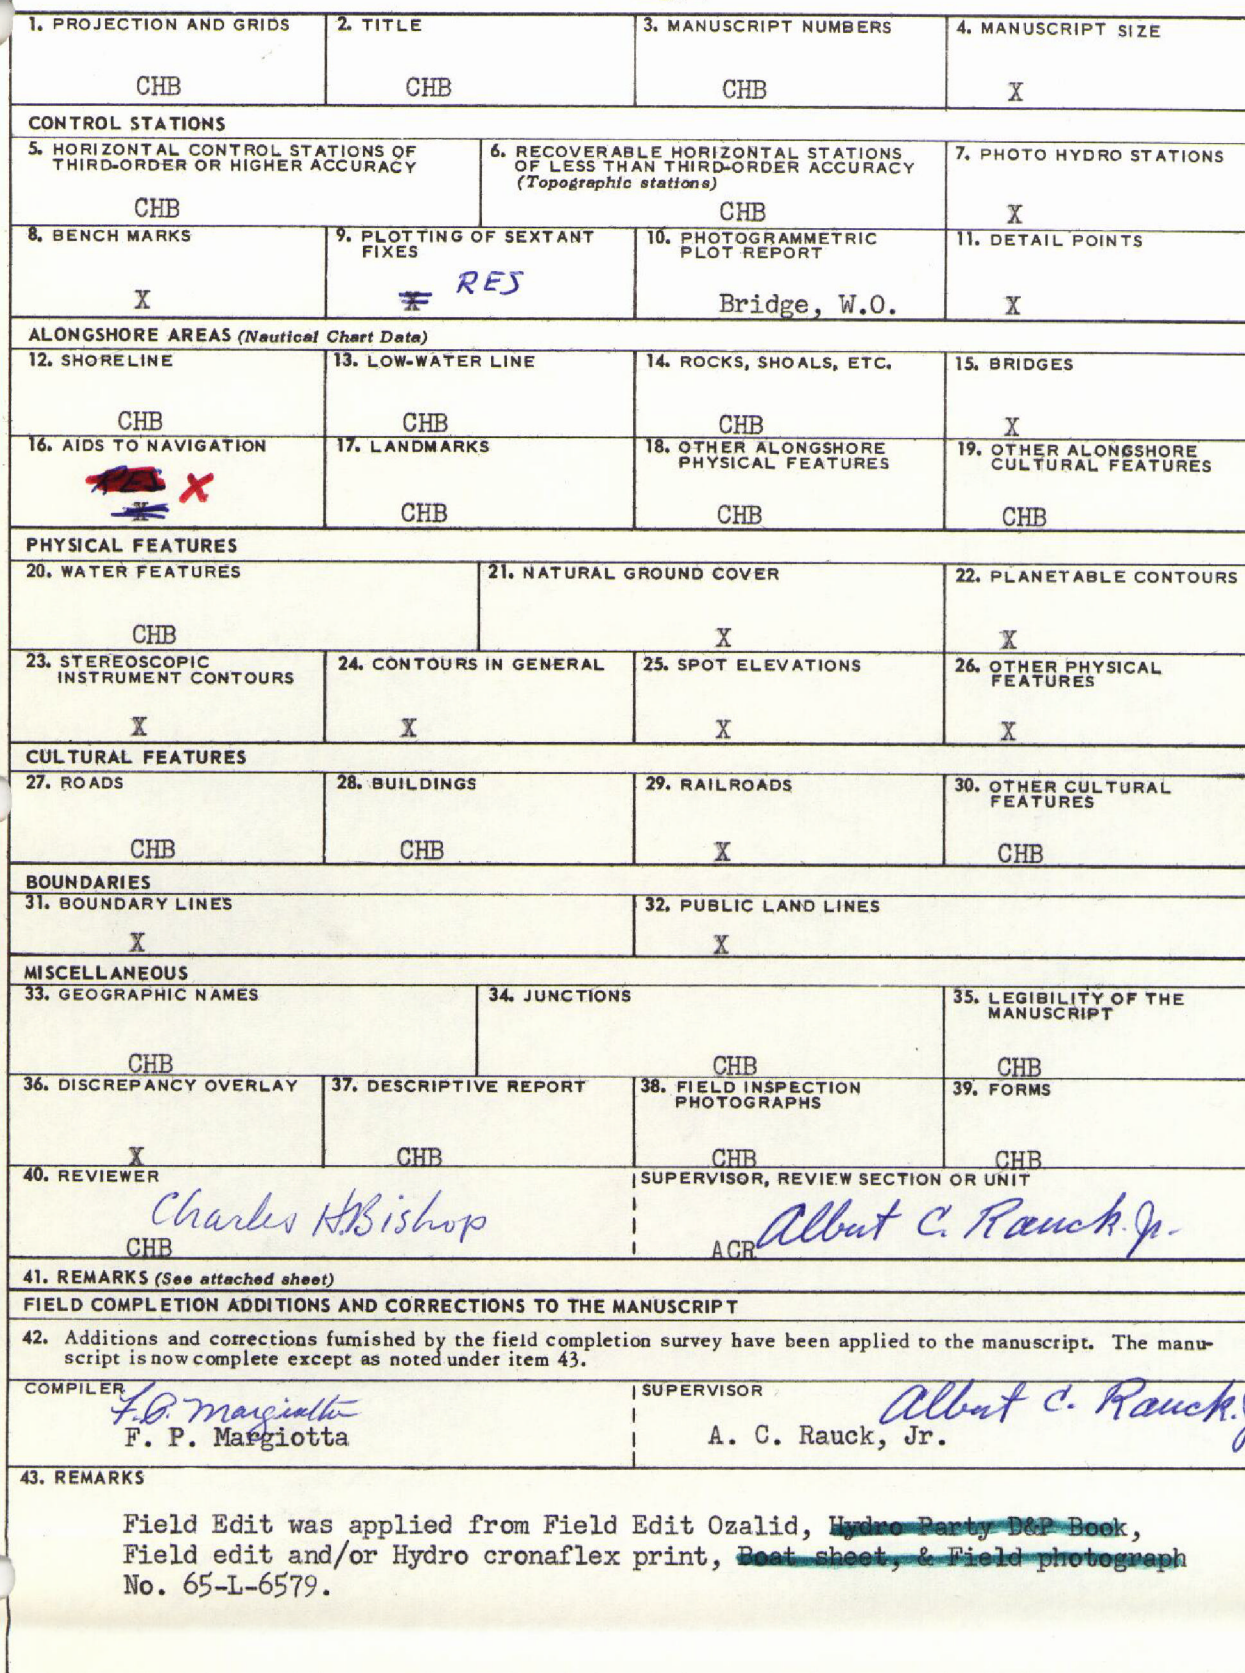 1. PROJECTION AND GRIDS
CHB
2. TITLE
CHB
3. MANUSCRIPT NUMBERS
CHB
4. MANUSCRIPT SIZE
X
CONTROL STATIONS
5. HORIZONTAL CONTROL STATIONS OF
THIRD-ORDER OR HIGHER ACCURACY
CHB
6. RECOVERABLE HORIZONTAL STATIONS
OF LESS THAN THIRD-ORDER ACCURACY
(Topographic stations)
CHB
7. PHOTO HYDRO STATIONS
X
8. BENCH MARKS
X
9. PLOTTING OF SEXTANT
FIXES
X RES
10. PHOTOGRAMMETRIC
PLOT REPORT
Bridge, W.O.
11. DETAIL POINTS
X
ALONGSHORE AREAS (Nautical Chart Data)
12. SHORELINE
CHB
13. LOW-WATER LINE
CHB
14. ROCKS, SHOALS, ETC.
CHB
15. BRIDGES
X
16. AIDS TO NAVIGATION
RES X
X
17. LANDMARKS
CHB
18. OTHER ALONGSHORE
PHYSICAL FEATURES
CHB
19. OTHER ALONGSHORE
CULTURAL FEATURES
CHB
PHYSICAL FEATURES
20. WATER FEATURES
CHB
21. NATURAL GROUND COVER
X
22. PLANETABLE CONTOURS
X
23. STEREOSCOPIC
INSTRUMENT CONTOURS
X
24. CONTOURS IN GENERAL
X
25. SPOT ELEVATIONS
X
26. OTHER PHYSICAL
FEATURES
X
CULTURAL FEATURES
27. ROADS
CHB
28. BUILDINGS
CHB
29. RAILROADS
X
30. OTHER CULTURAL
FEATURES
CHB
BOUNDARIES
31. BOUNDARY LINES
X
32. PUBLIC LAND LINES
X
MISCELLANEOUS
33. GEOGRAPHIC NAMES
CHB
34. JUNCTIONS
CHB
35. LEGIBILITY OF THE
MANUSCRIPT
CHB
36. DISCREPANCY OVERLAY
X
37. DESCRIPTIVE REPORT
CHB
38. FIELD INSPECTION
PHOTOGRAPHS
CHB
39. FORMS
CHB
40. REVIEWER
Charles H. Bishop
CHB
SUPERVISOR, REVIEW SECTION OR UNIT
Albert C. Rauck. Jr.
ACR
41. REMARKS (See attached sheet)
FIELD COMPLETION ADDITIONS AND CORRECTIONS TO THE MANUSCRIPT
42. Additions and corrections furnished by the field completion survey have been applied to the manuscript. The manu-
script is now complete except as noted under item 43.
COMPILER
F.P. Margiotta
F. P. Margiotta
SUPERVISOR
Albert C. Rauck. J
A. C. Rauck, Jr.
43. REMARKS
Field Edit was applied from Field Edit Ozalid, Hydro Party D&P Book,
Field edit and/or Hydro cronaflex print, Boat sheet, & Field photograph
No. 65-L-6579.